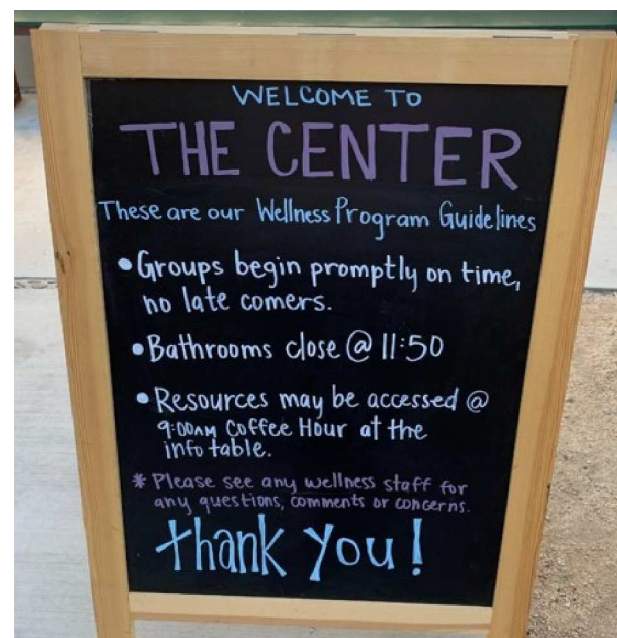 WELCOME TO
THE CENTER
These are our Wellness Program Guidelines
• Groups begin promptly on time,
no late comers.
• Bathrooms close @ 11:50
• Resources may be accessed @
9:00AM Coffee Hour at the
info table.
* Please see any wellness staff for
any questions, comments or concerns.
thank you!